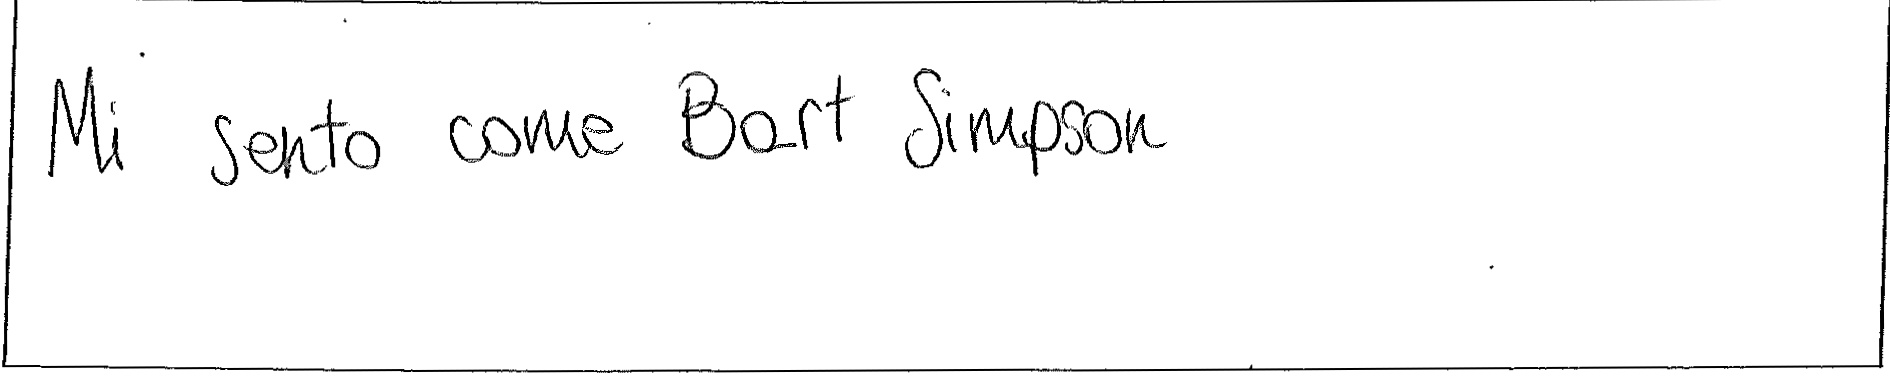 Mi sento come Bart Simpson